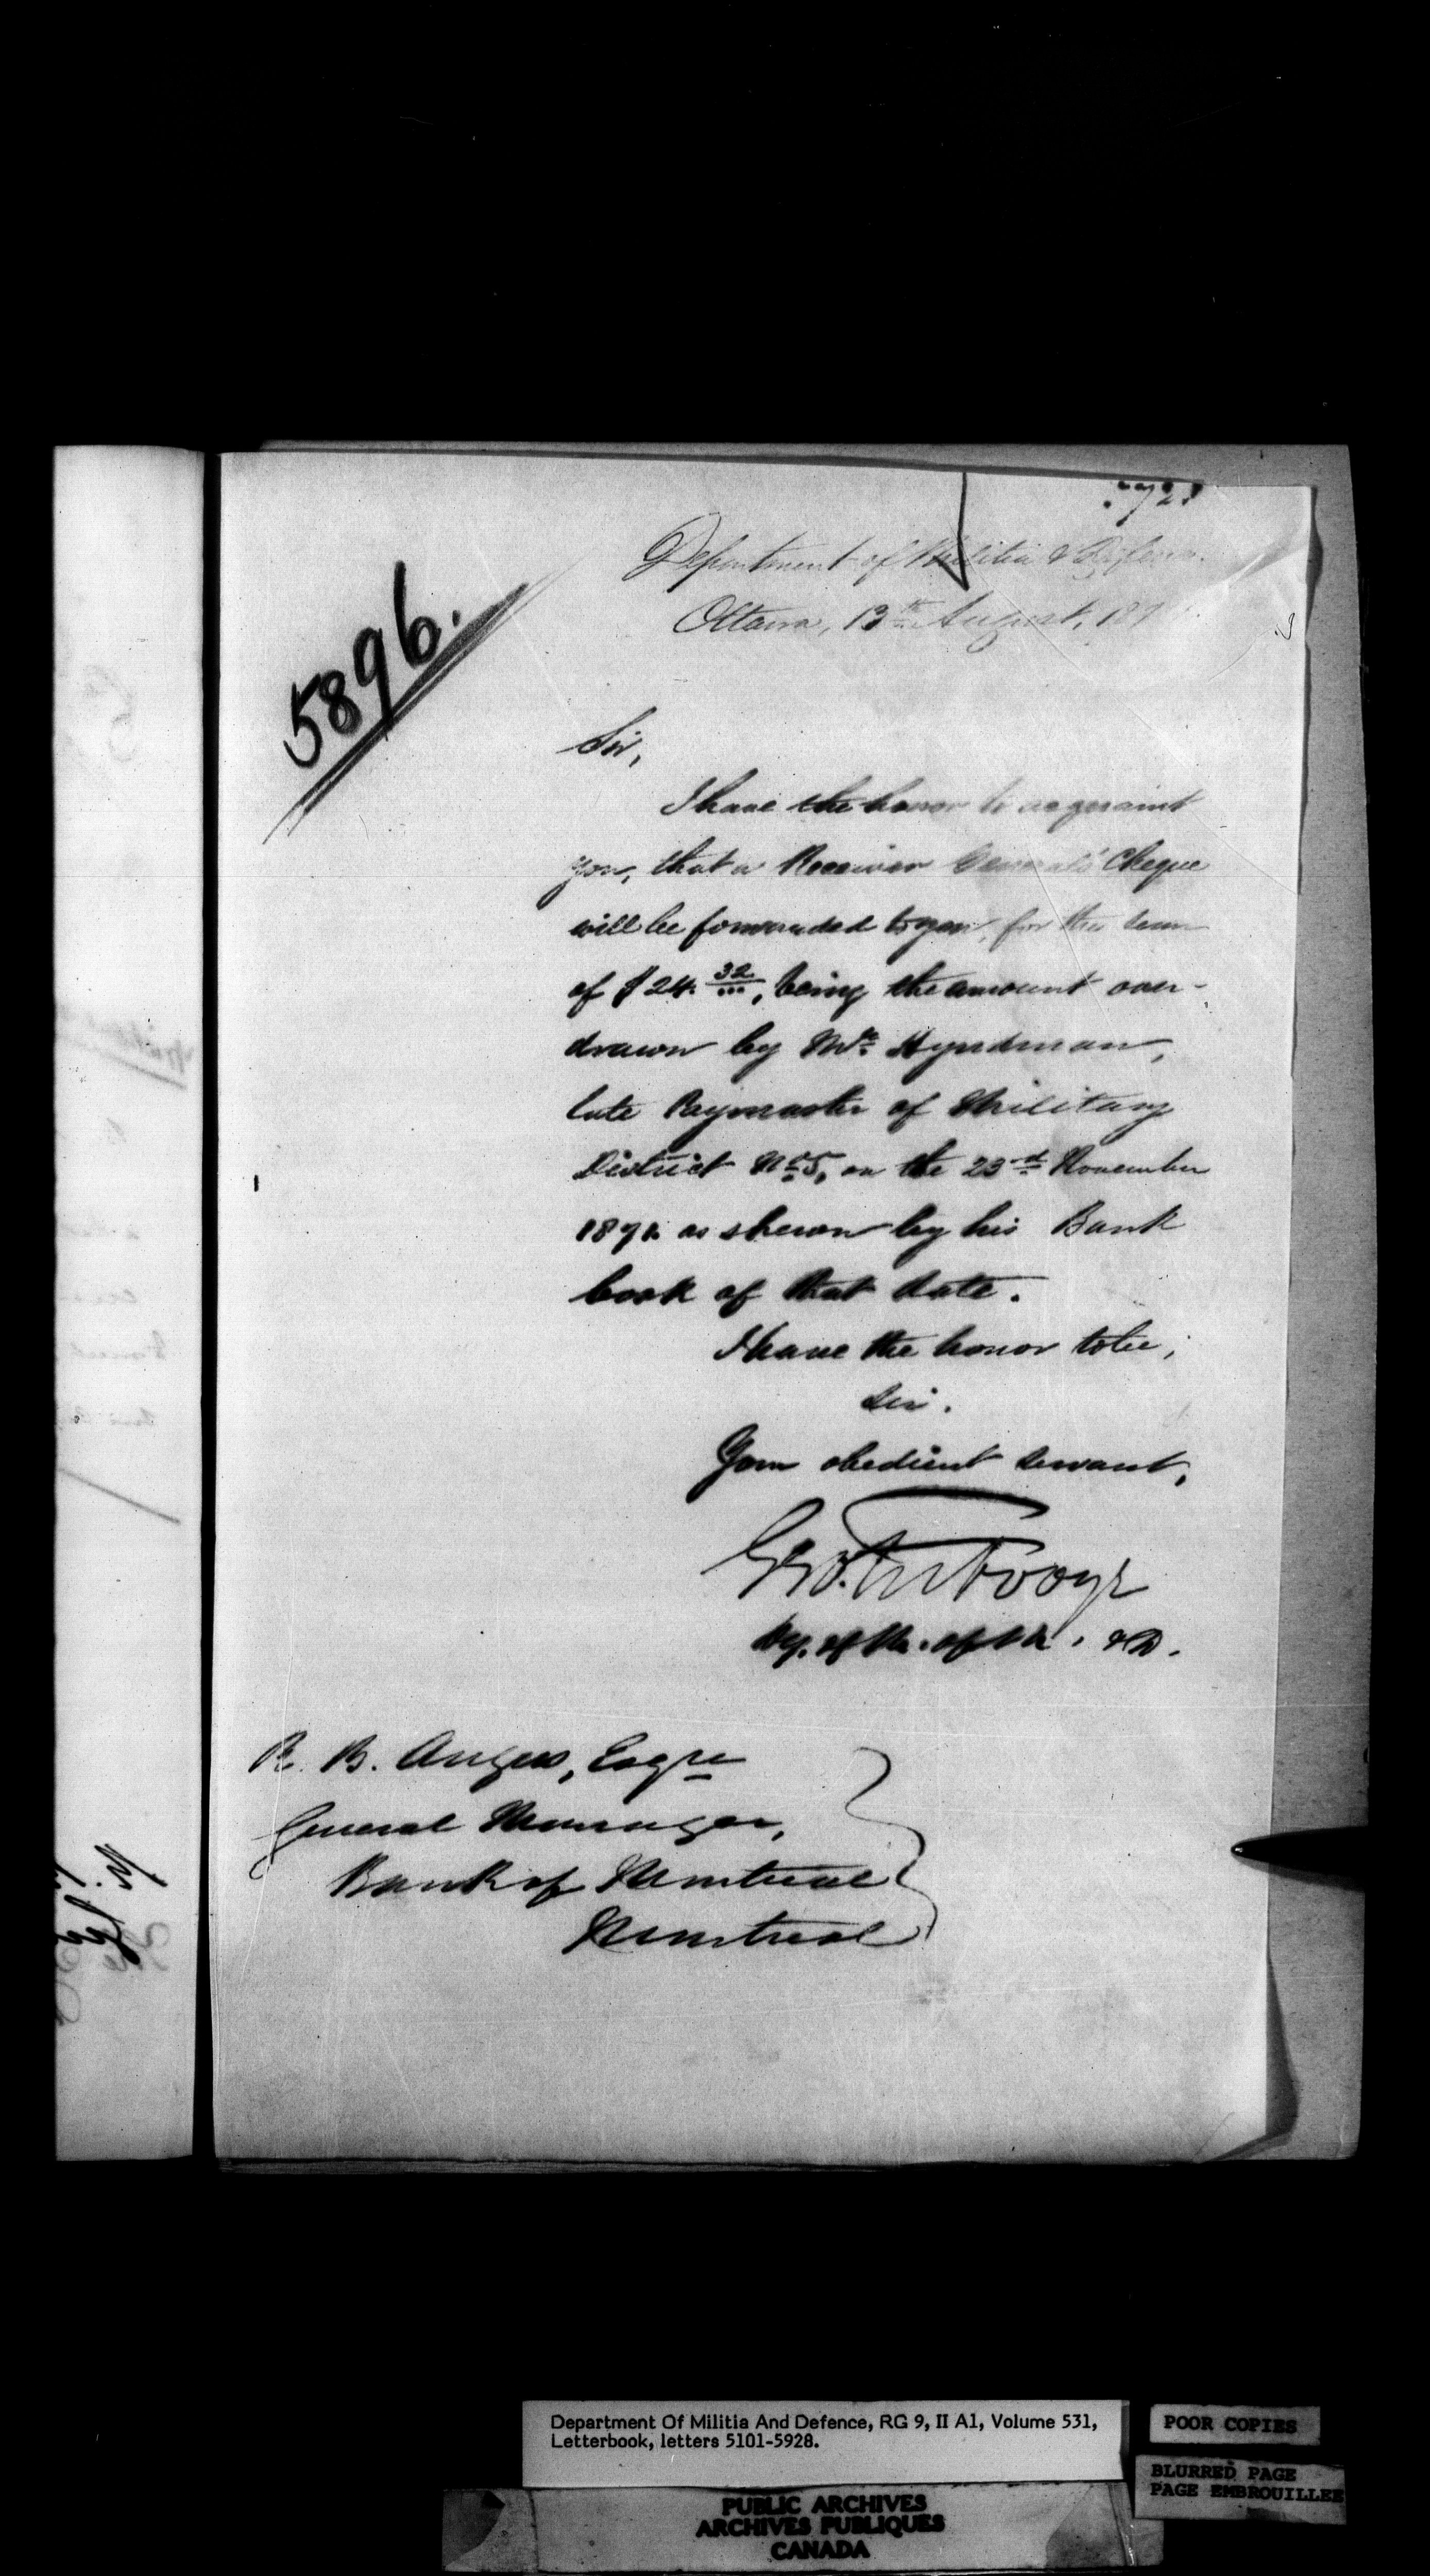 5896.
Department of Militia & Defence.
Ottawa, 13th August, 187
Sir,
I have the honor to acquaint
you, that a Receiver General's Cheque
will be forwarded to you, for the sum
of $24.32, being the amount over-
drawn by Mr. Hyndman,
late Paymaster of Military
District No 5, on the 23rd November
1871 as shewn by his Bank
book of that date.
I have the honor to be,
Sir.
Your obedient servant,
Geo. Futvoye
Dy. of M. of M. & D.
R. B. Angus, Esqre
General Manager,
Bank of Montreal
Montreal
Department Of Militia And Defence, RG 9, II A1, Volume 531,
Letterbook, letters 5101-5928.
POOR COPIES
BLURRED PAGE
PAGE EMBROUILLEE
PUBLIC ARCHIVES
ARCHIVES PUBLIQUES
CANADA